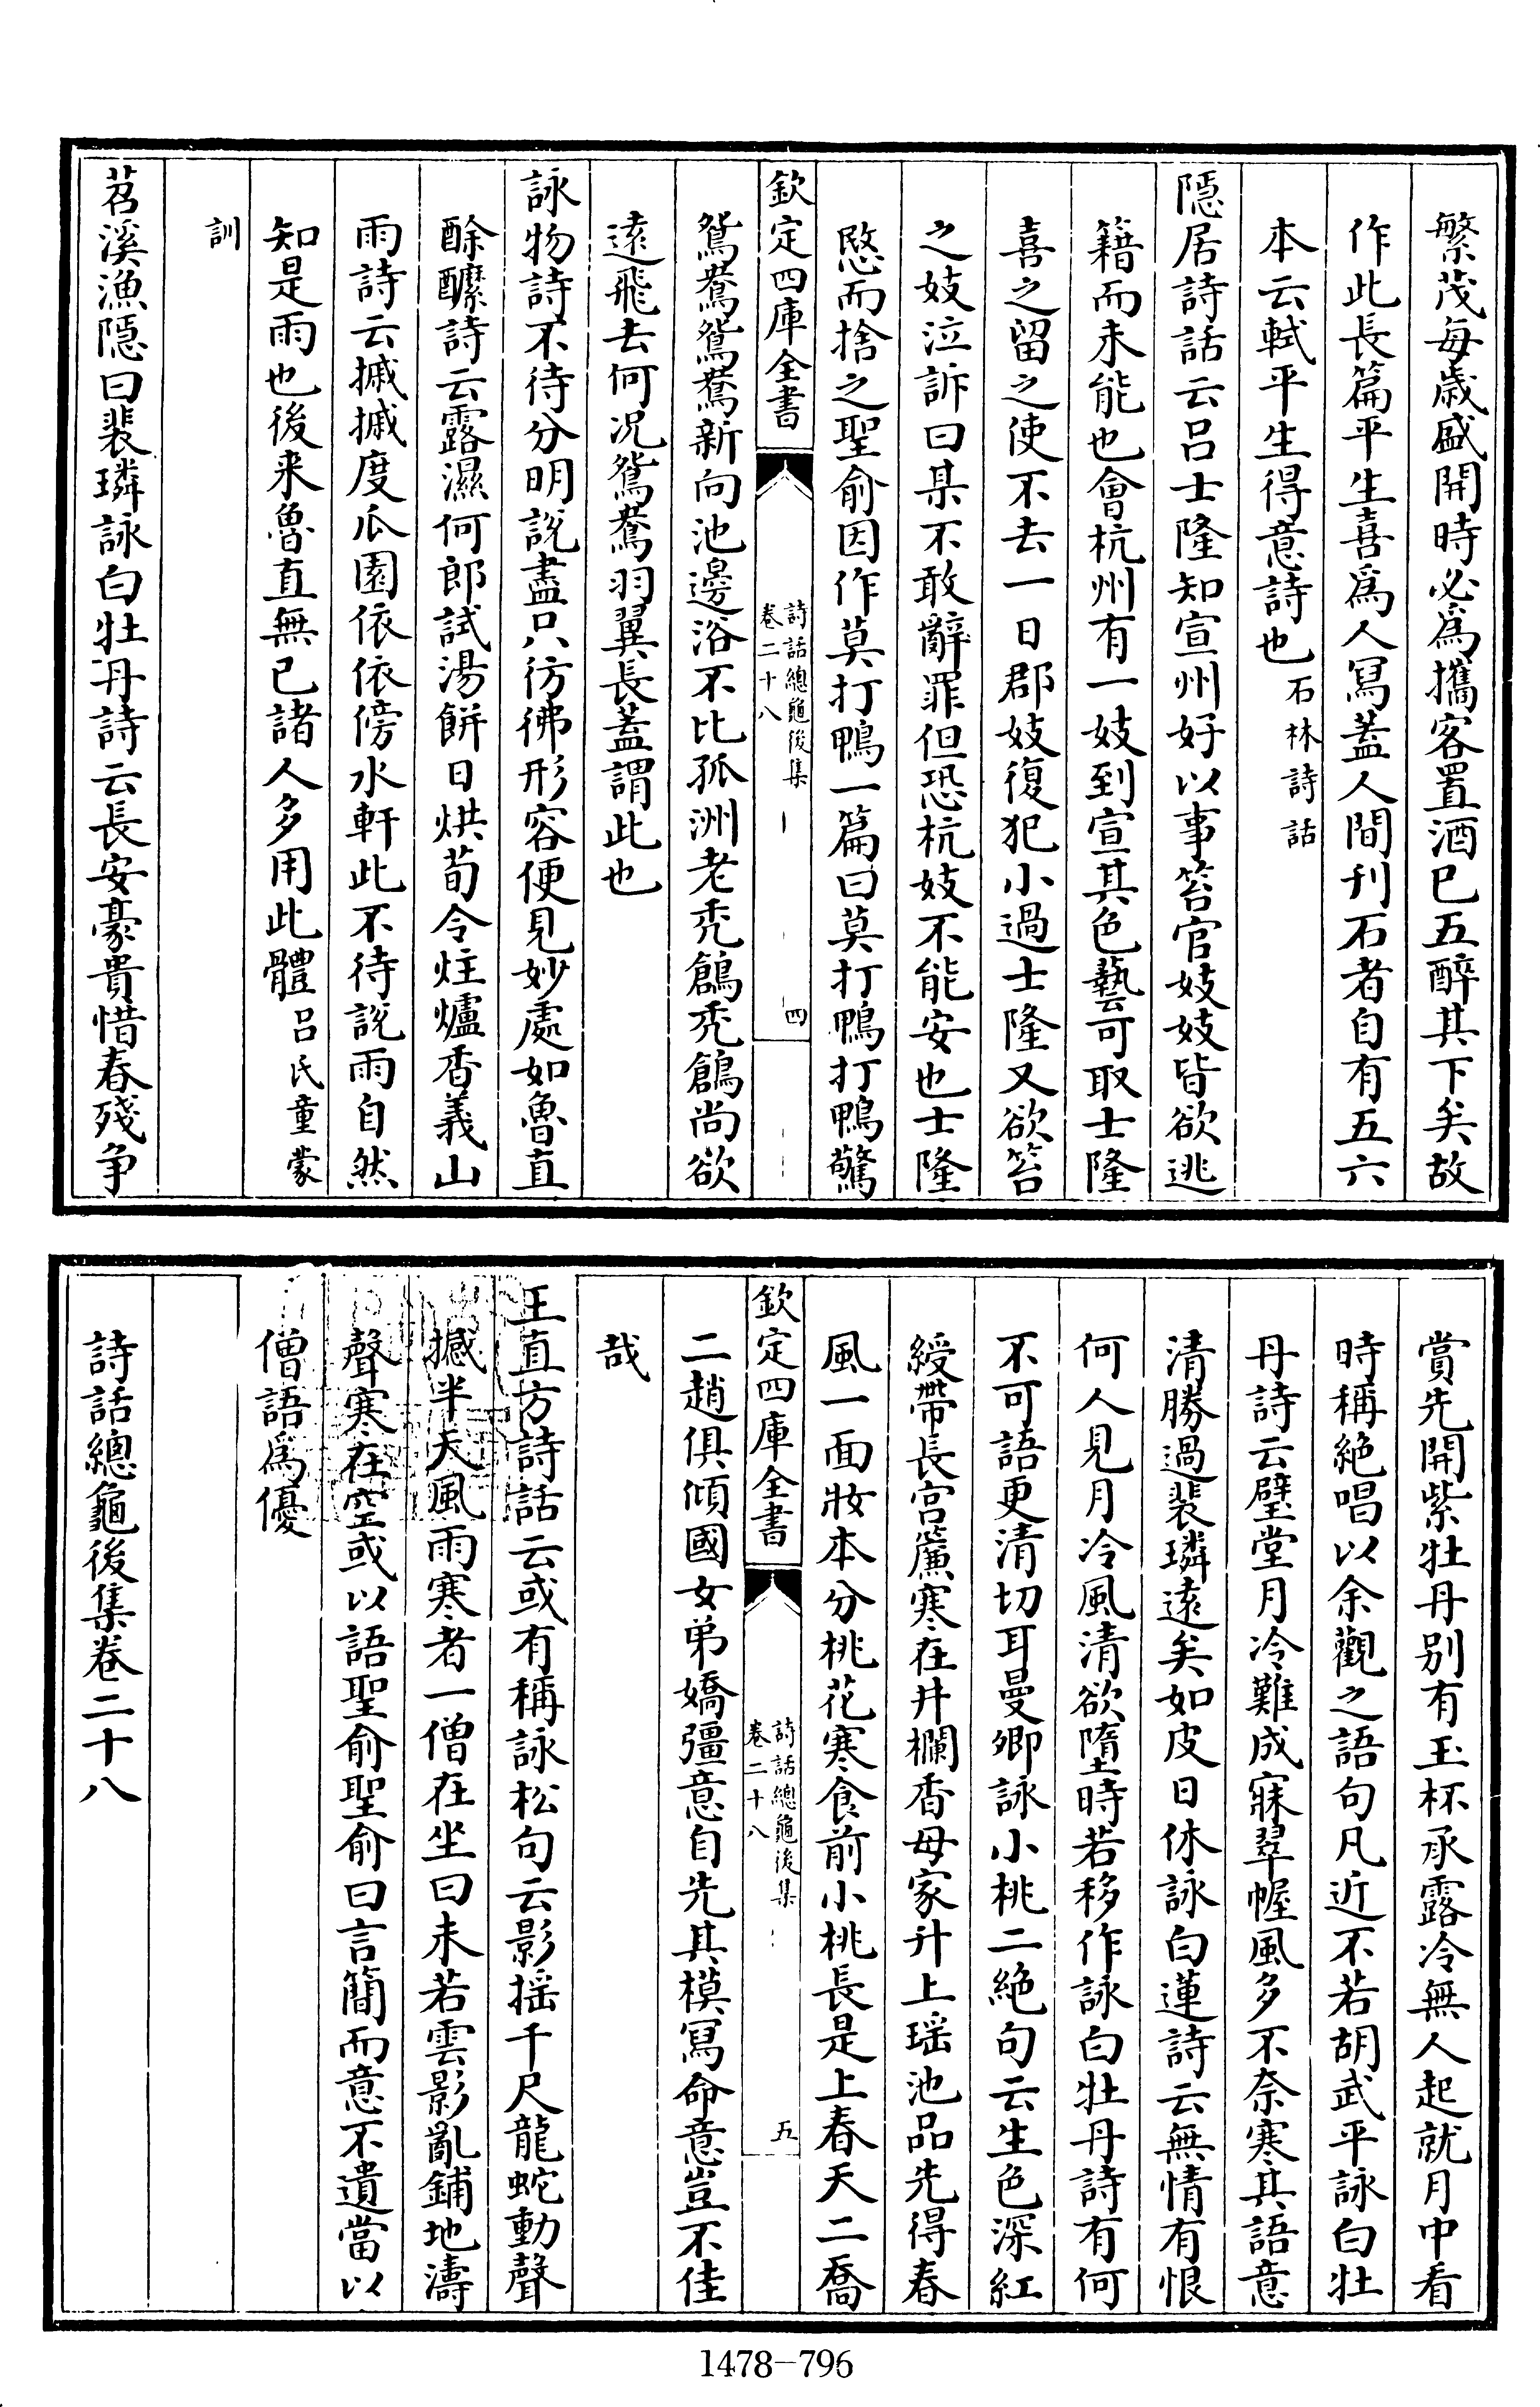 繁茂每歳盛開時必爲攜客置酒已五醉其下矣故
作此長篇平生喜爲人寫蓋人間刋石者自有五六
本云軾平生得意詩也石林詩話
隠居詩話云吕士隆知宣州好以事笞官妓妓皆欲逃
籍而未能也會杭州有一妓到宣其色藝可取士隆
喜之留之使不去一日郡妓復犯小過士隆又欲笞
之妓泣訴曰某不敢辭罪但恐杭妓不能安也士隆
愍而捨之聖俞因作莫打鴨一篇曰莫打鴨打鴨驚
欽定四庫全書
詩話總龜後集
卷二十八
四
鴛鴦鴛鴦新向池邊浴不比孤洲老秃鶬秃鶬尚欲
逺飛去何况鴛鴦羽翼長蓋謂此也
詠物詩不待分明說盡只彷彿形容便見妙處如魯直
酴醿詩云露濕何郎試湯餅日烘荀令炷爐香義山
雨詩云摵摵度瓜園依依傍水軒此不待説雨自然
知是雨也後来魯直無已諸人多用此體吕氏童蒙
訓
苕溪漁隠曰裴璘詠白牡丹詩云長安豪貴惜春殘争
賞先開紫牡丹别有玉杯承露冷無人起就月中看
時稱絶唱以余觀之語句凡近不若胡武平詠白牡
丹詩云璧堂月冷難成寐翠幄風多不奈寒其語意
清勝過裴璘逺矣如皮日休詠白蓮詩云無情有恨
何人見月冷風清欲墮時若移作詠白牡丹詩有何
不可語更清切耳曼卿詠小桃二絶句云生色深紅
綬帶長宫簾寒在井欄香母家升上瑶池品先得春
風一面妝本分桃花寒食前小桃長是上春天二喬
欽定四庫全書
詩話總龜後集
卷二十八
五
二趙俱傾國女弟嬌彊意自先其模寫命意豈不佳
哉
王直方詩話云或有稱詠松句云影摇千尺龍蛇動聲
撼半天風雨寒者一僧在坐曰未若雲影亂鋪地濤
聲寒在空或以語聖俞聖俞曰言簡而意不遺當以
僧語爲優
詩話總龜後集卷二十八
1478-796